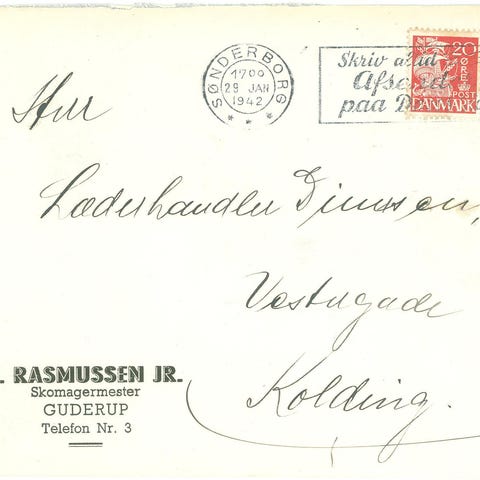 SØNDERBORG
1700
29 JAN
1942
Skriv altid
Afsend
paa
20
ØRE
POST
DANMARK
Herr
Læderhandler Diemsen,
Vestergade
Kolding.
. RASMUSSEN JR.
Skomagermester
GUDERUP
Telefon Nr. 3